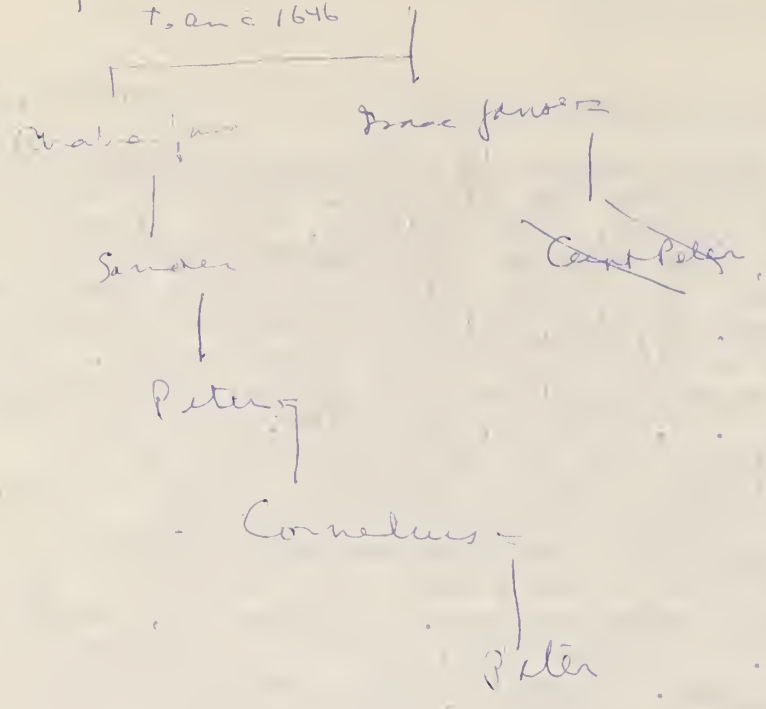 1646
Isaac Jansen
Sander
Capt Peter
Peter
Cornelius
Peter